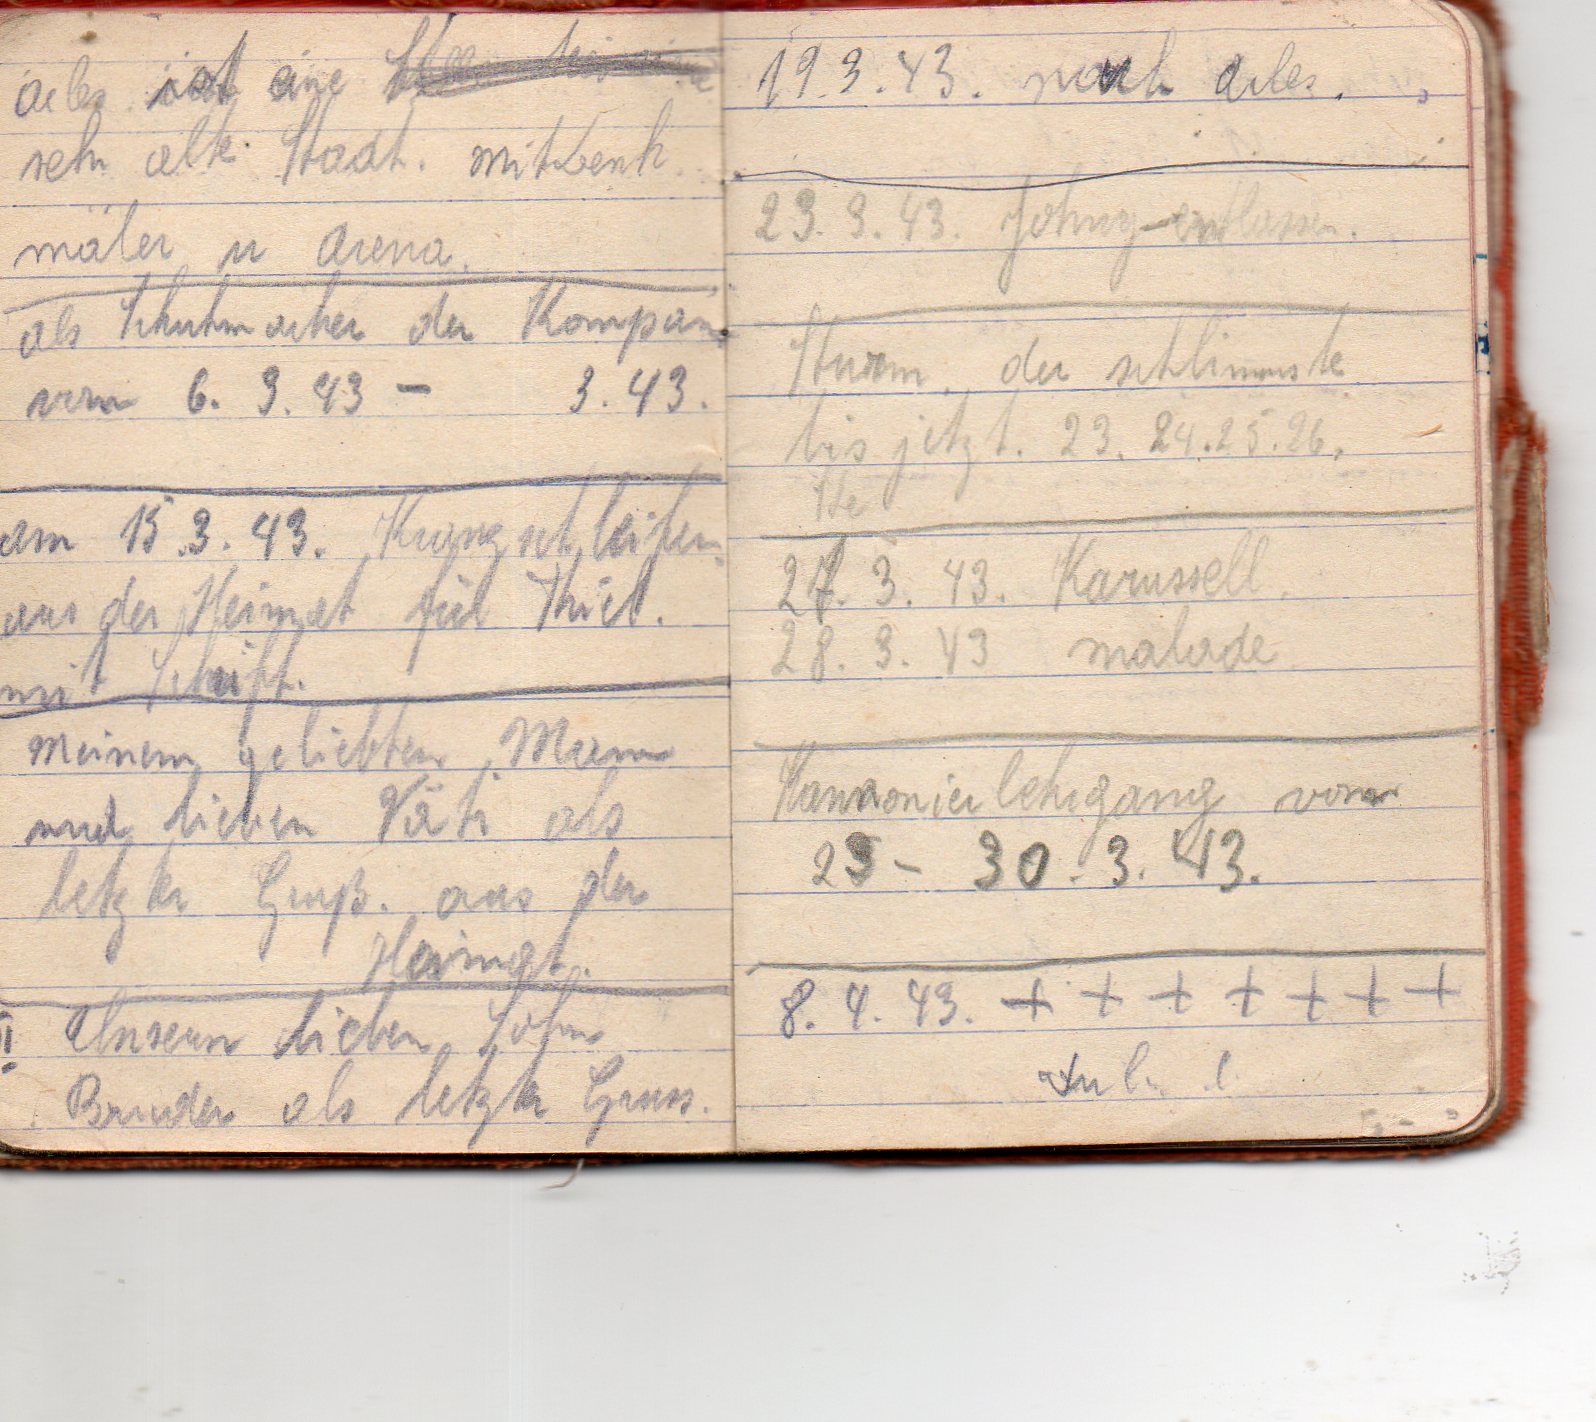 Arles ist eine
sehr alte Stadt. mit Denk
mäler u Arena.
als Schuhmacher der Kompan
vom 6. 3. 43 - 3. 43.
am 15.3.43. Kranzschleifen
aus der Heimat für Thiel.
mit Schrift.
Meinem geliebten Mann
und lieben Väti als
letzter Gruß. aus der
Heimat.
II Unsern lieben Sohn
Bruder als letzter Gruss.
19.3.43. nach Arles.
23.3.43. Johny-entlassen.
Sturm. der schlimmste
bis jetzt. 23. 24. 25. 26.
27. 3. 43. Karussell.
28. 3. 43 malade
Kannonierlehrgang vom
- 30. 3. 43.
8. 4. 43. + + + + + + +